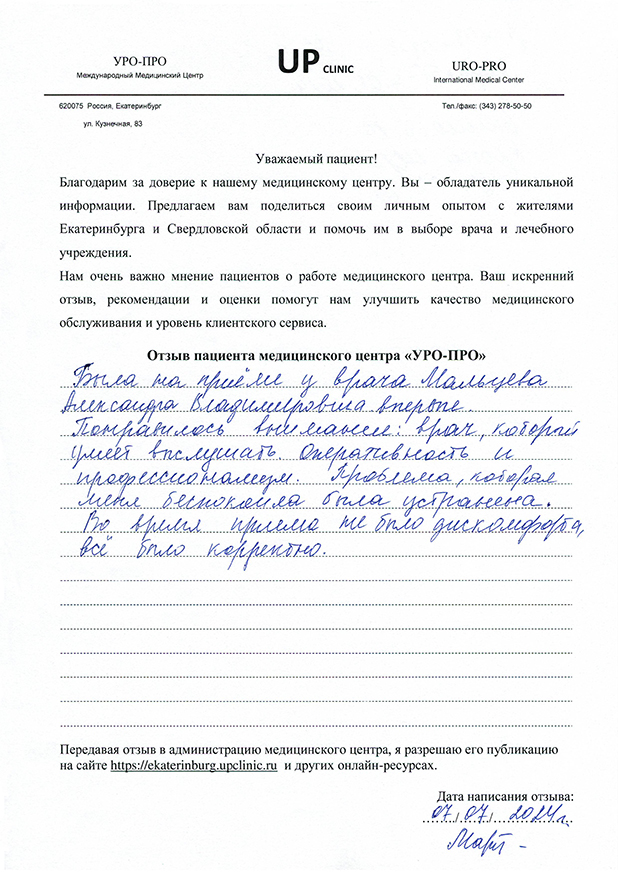 УРО-ПРО
Международный Медицинский Центр
UP CLINIC
URO-PRO
International Medical Center
620075 Россия, Екатеринбург
ул. Кузнечная, 83
Тел./факс: (343) 278-50-50
Уважаемый пациент!
Благодарим за доверие к нашему медицинскому центру. Вы – обладатель уникальной
информации. Предлагаем вам поделиться своим личным опытом с жителями
Екатеринбурга и Свердловской области и помочь им в выборе врача и лечебного
учреждения.
Нам очень важно мнение пациентов о работе медицинского центра. Ваш искренний
отзыв, рекомендации и оценки помогут нам улучшить качество медицинского
обслуживания и уровень клиентского сервиса.
Отзыв пациента медицинского центра «УРО-ПРО»
Была на приёме у врача Мальцева
Александра Владимировича впервые.
Понравилось внимание: врач, который
умеет выслушать. Оперативность и
профессионализм. Проблема, которая
меня беспокоила была устранена.
Во время приема не было дискомфорта,
всё было корректно.
Передавая отзыв в администрацию медицинского центра, я разрешаю его публикацию
на сайте https://ekaterinburg.upclinic.ru и других онлайн-ресурсах.
Дата написания отзыва:
07/07/2024г.